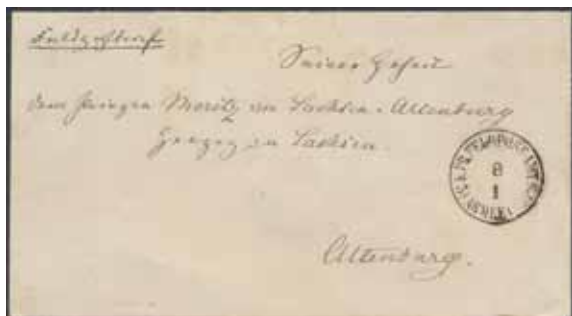 Feldpostbrief
Seiner Hoheit
dem Prinzen Moritz von Sachsen-Altenburg
Herzog zu Sachsen.
8
1
Altenburg.